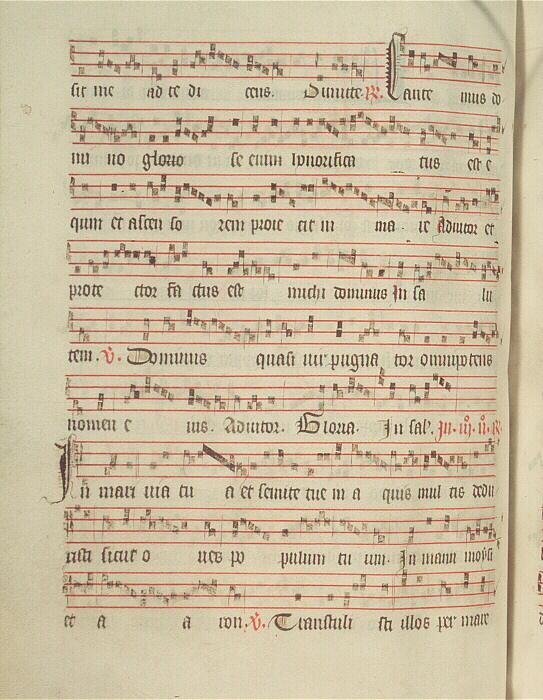 sit me ad te di cens. Sumite R. Cante mus do
mi no glorio se enim honorifica tus est e
quum et ascen so rem proie cit in ma re Adiutor et
prote ctor fa ctus est michi dominus In sa lu
tem. V. Dominus quasi uir pugna tor omnipotens
nomen e ius. Adiutor. Gloria. In sal.
In mari uia tu a et semite tue in a quis mul tis dedu
xisti sicut o ues po pulum tu um. In manu moysi
et a a ron. V. Transtuli sti illos per mare